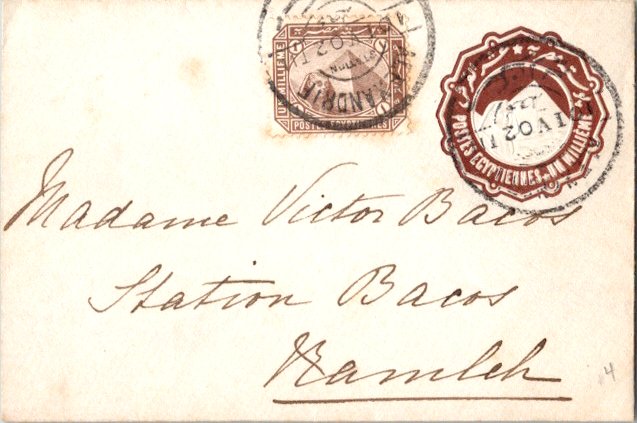 UN MILLIEME
POSTES EGYPTIENNES
ALEXANDRIE
IV 02
POSTES EGYPTIENNES . UN MILLIEME
IV 02
Madame Victor Bacos
Station Bacos
Ramleh
4